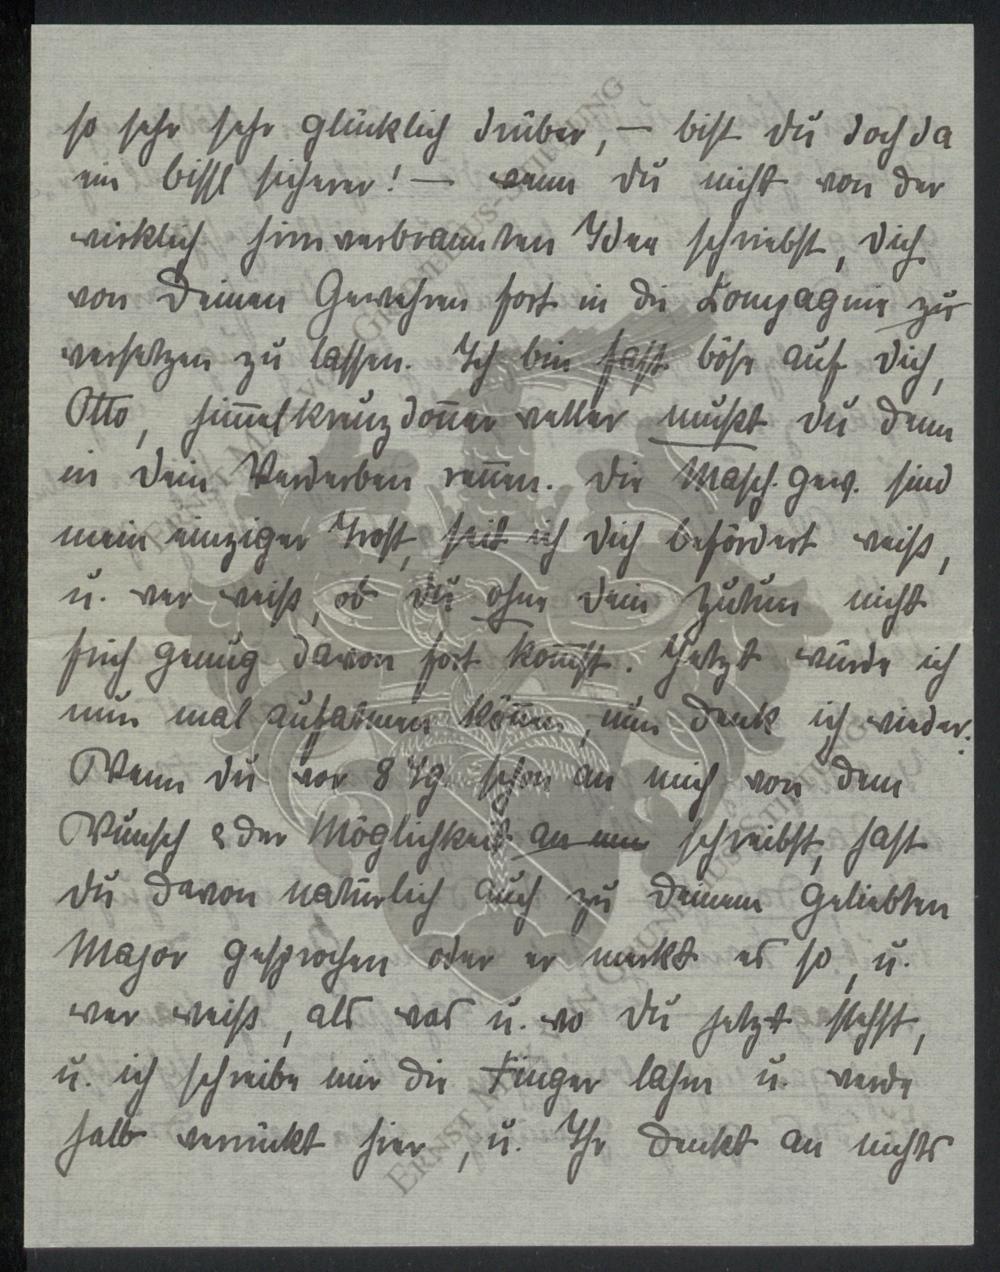 so sehr sehr glücklich drüber, – bist du doch da
ein bissl sicherer! – wenn du nicht von der
wirklich hirnverbrannten Idee schriebst, dich
von Deinen Gewehren fort in die Kompagnie zu
versetzen zu lassen. Ich bin fast böse auf dich,
Otto, himelkreuzdoner wetter mußt du denn
in dein Verderben renen. Die Masch. Gew. sind
mein einziger Trost, seit ich dich befördert weiß,
u. wer weiß, ob du ohne dein Zutun nicht
früh genug davon fort komst. Jetzt würde ich
nun mal aufatmen könen, nun denk ich wieder:
Wenn du vor 8 Tg. schon an mich von dem
Wunsch & der Möglichkeit an mm schreibst, hast
du davon natürlich auch zu deinem geliebten
Major gesprochen oder er merkt es so, u.
wer weiß, als was u. wo du jetzt stehst,
u. ich schreibe mir die Finger lahm u. werde
halb verrückt hier, u. Ihr denkt an nichts
ERNST MAX VON GRUNELIUS-STIFTUNG
ERNST MAX VON GRUNELIUS-STIFTUNG